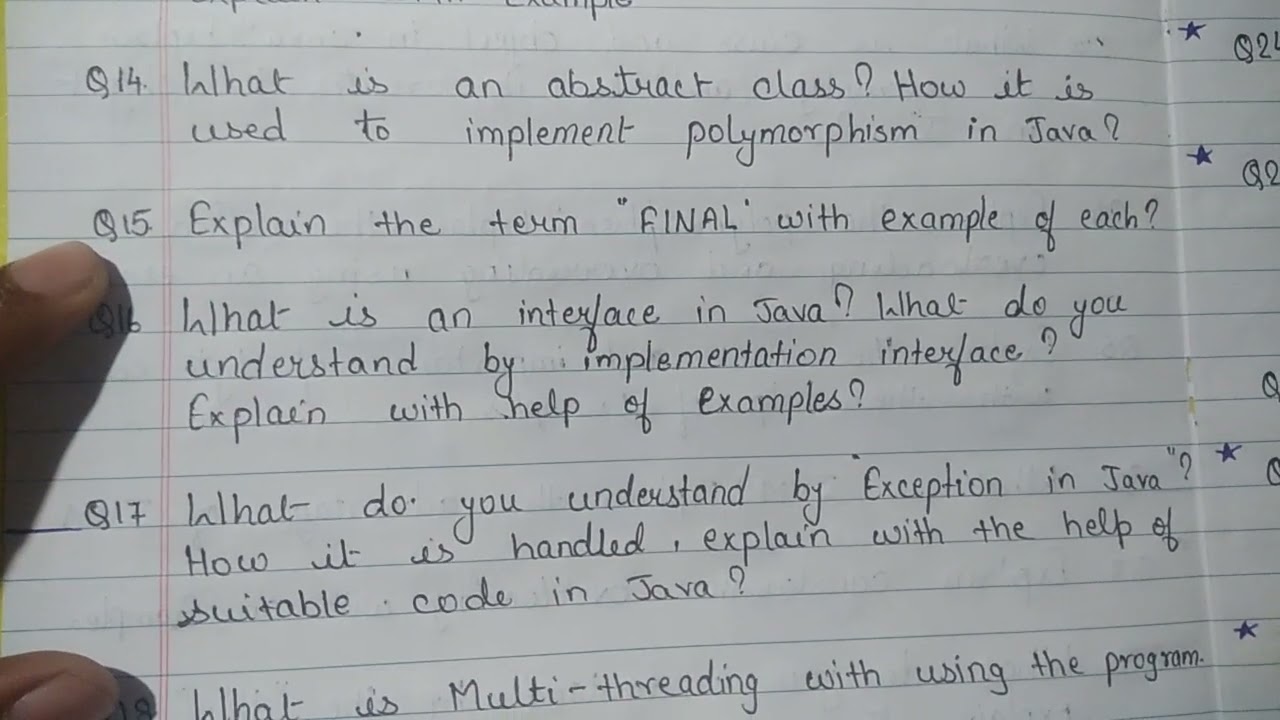 Example
Q14. What is an abstract class? How it is
used to implement polymorphism in Java?
Q15. Explain the term "FINAL" with example of each?
Q16 What is an interface in Java? What do you
understand by implementation interface?
Explain with help of examples?
Q17 What do you understand by "Exception in Java"?
How it is handled, explain with the help of
suitable code in Java?
18 What is Multi-threading with using the program.
★
Q2
★
Q2
Q
★
Q
★